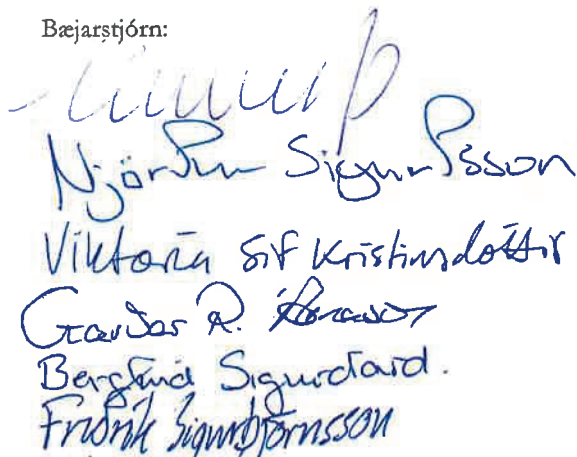 Bæjarstjórn:
Njörður Sigurðsson
Viktoría Sif Kristinsdóttir
Garðar R.
Berglind Sigurðard.
Friðrik Sigurbjörnsson